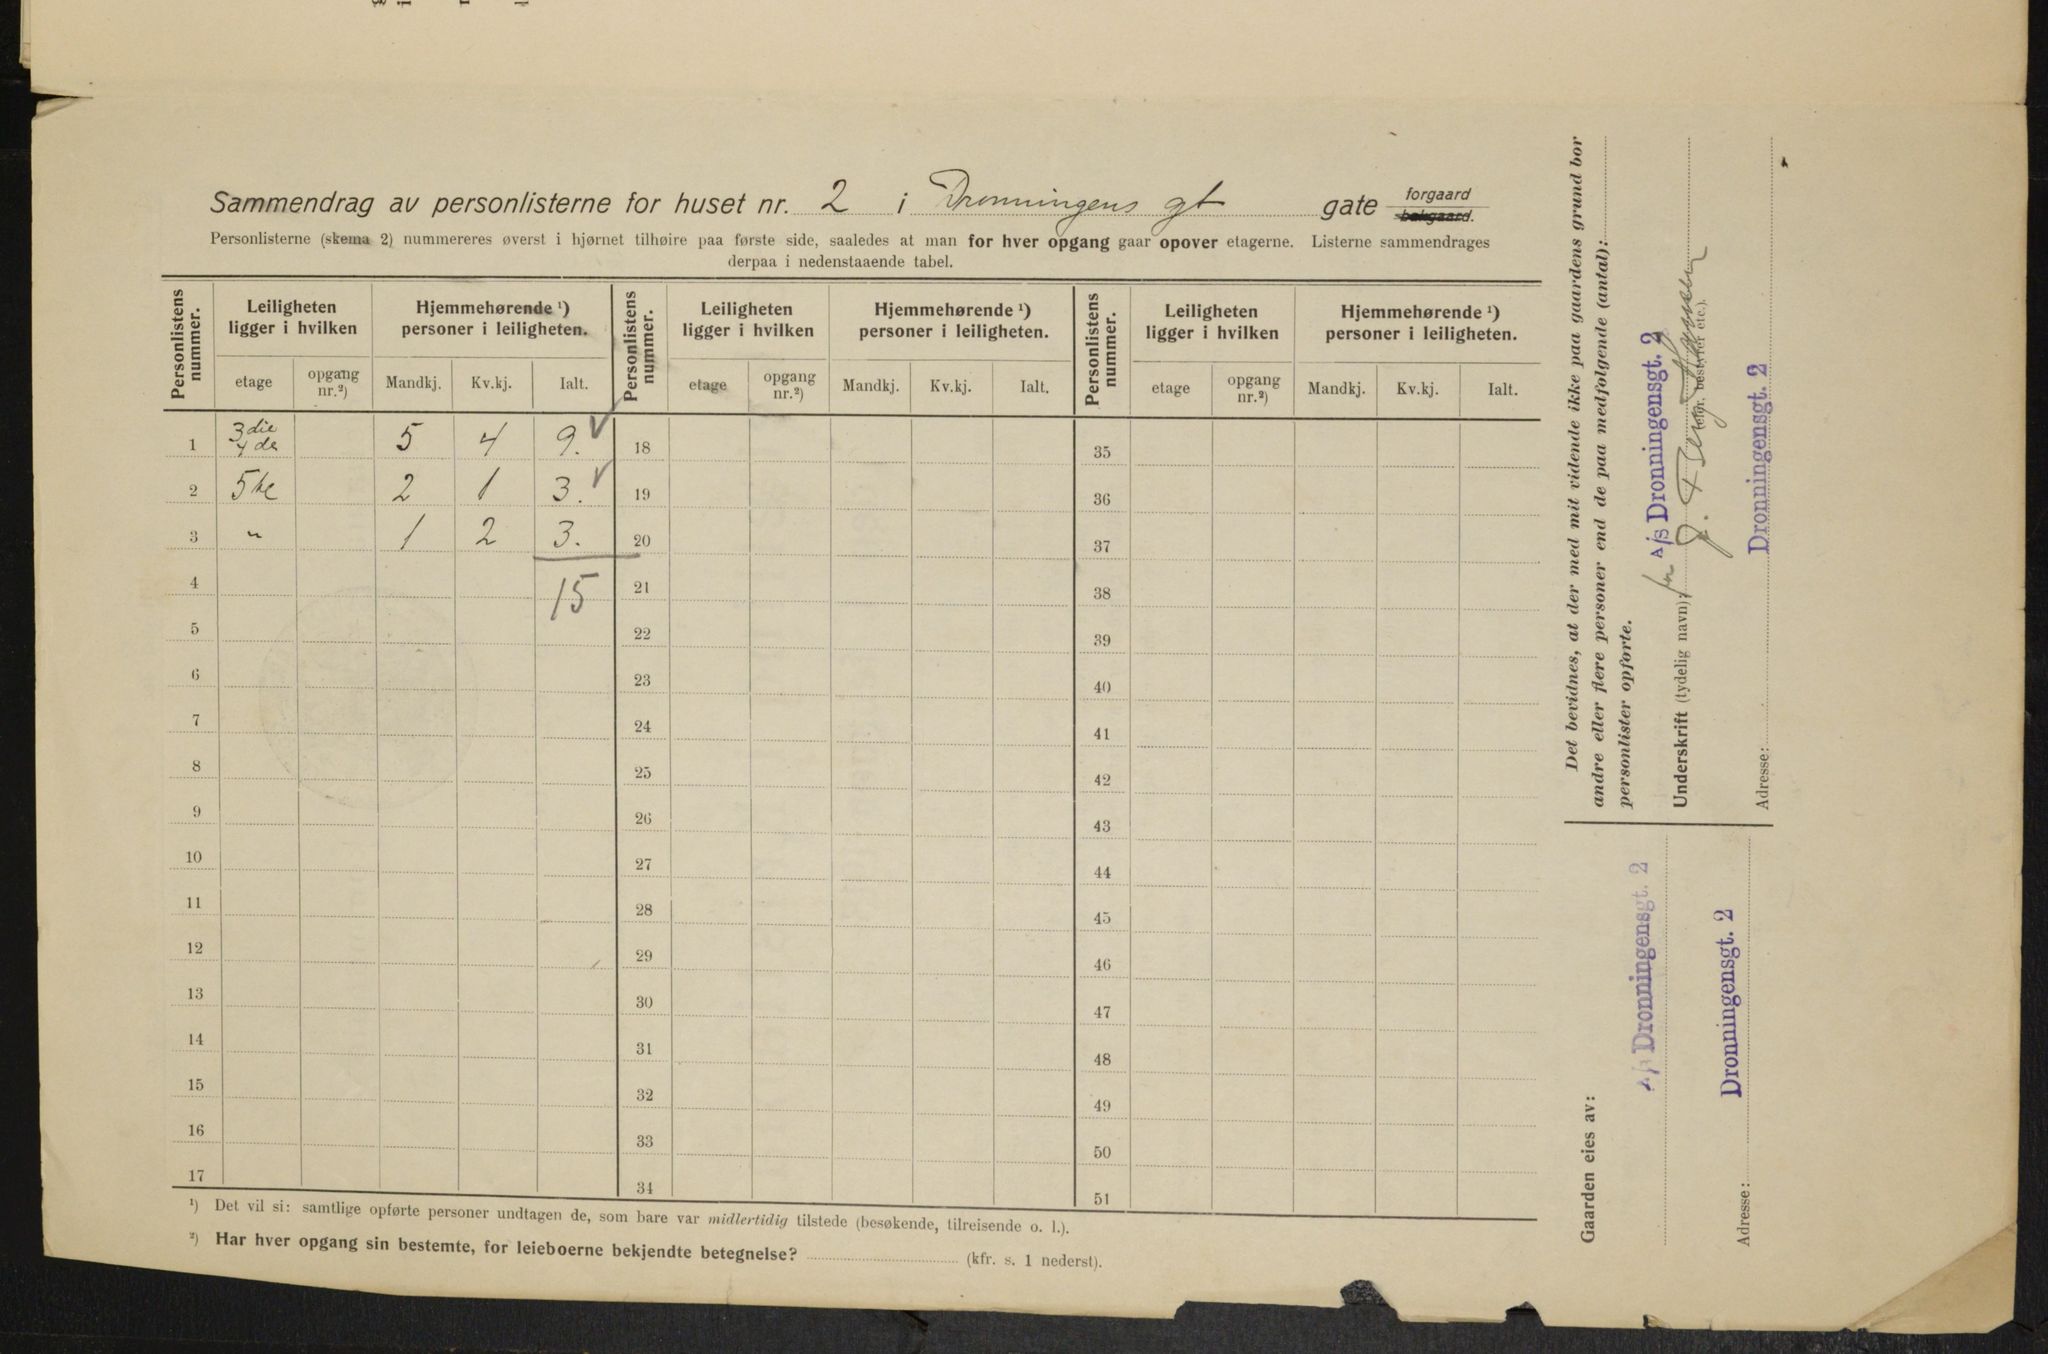 Sammendrag av personlisterne for huset nr. 2 i Dronningens gt gate forgaard bakgaard.
Personlisterne (skema 2) nummereres øverst i hjørnet tilhøire paa første side, saaledes at man for hver opgang gaar opover etagerne. Listerne sammendrages
derpaa i nedenstaaende tabel.
Personlistens nummer. Leiligheten ligger i hvilken Hjemmehørende ¹) personer i leiligheten. Personlistens nummer. Leiligheten ligger i hvilken Hjemmehørende ¹) personer i leiligheten. Personlistens nummer. Leiligheten ligger i hvilken Hjemmehørende ¹) personer i leiligheten.
etage opgang nr.²) Mandkj. Kv.kj. Ialt. etage opgang nr.²) Mandkj. Kv.kj. Ialt. etage opgang nr.²) Mandkj. Kv.kj. Ialt.
1 3die 4de 5 4 9. 18 35
2 5te 2 1 3. 19 36
3 " 1 2 3. 20 37
4 15 21 38
5 22 39
6 23 40
7 24 41
8 25 42
9 26 43
10 27 44
11 28 45
12 29 46
13 30 47
14 31 48
15 32 49
16 33 50
17 34 51
¹) Det vil si: samtlige opførte personer undtagen de, som bare var midlertidig tilstede (besøkende, tilreisende o. l.).
²) Har hver opgang sin bestemte, for leieboerne bekjendte betegnelse? (kfr. s. 1 nederst).
Det bevidnes, at der med mit vidende ikke paa gaardens grund bor
andre eller flere personer end de paa medfølgende (antal):
personlister opførte.
A/S Dronningensgt. 2
Underskrift (tydelig navn): for J.
bestyrer etc.).
Dronningensgt. 2
Adresse:
Gaarden eies av:
A/S Dronningensgt. 2
Dronningensgt. 2
Adresse: